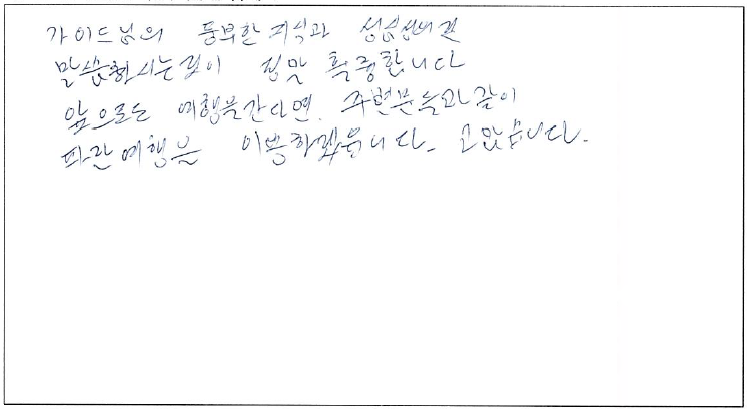 가이드님의 풍부한 지식과 성심성의껏
말씀하시는것이 정말 훌륭합니다
앞으로는 여행을간다면. 주변분들과같이
파란여행을 이용하겠읍니다. 고맙습니다.